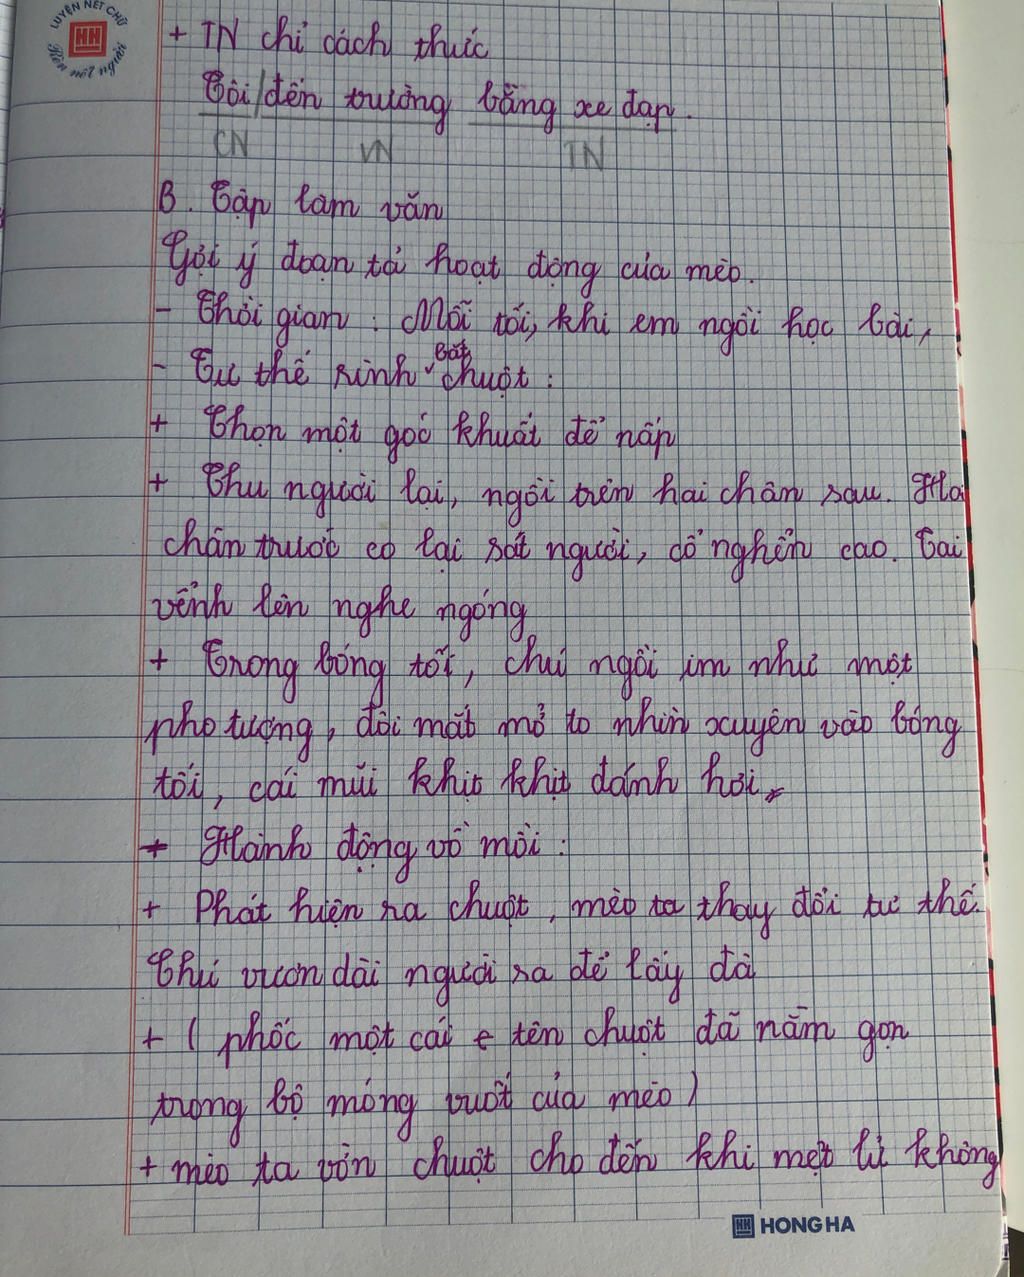 LUYỆN NÉT CHỮ
HH
Rèn nết người
+ TN chỉ cách thức
Tôi/đến trường bằng xe đạp.
CN VN TN
B. Tập làm văn
Gợi ý đoạn tả hoạt động của mèo.
- Thời gian : Mỗi tối, khi em ngồi học bài,
- Tư thế rình bắt chuột :
+ Chọn một góc khuất để nấp
+ Thu người lại, ngồi trên hai chân sau. Ha
chân trước co lại sát người, cổ nghển cao. Tai
vểnh lên nghe ngóng
+ Trong bóng tối, chú ngồi im như một
pho tượng, đôi mắt mở to nhìn xuyên vào bóng
tối, cái mũi khịt khịt đánh hơi.
+ Hành động vồ mồi :
+ Phát hiện ra chuột, mèo ta thay đổi tư thế.
Chú vươn dài người ra để lấy đà
+ ( phốc một cái e tên chuột đã nằm gọn
trong bộ móng vuốt của mèo )
+ mèo ta vờn chuột cho đến khi mệt lử không
HH HONG HA